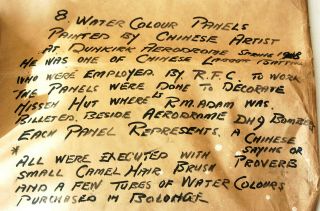 8. WATER COLOUR PANELS
PAINTED BY CHINESE ARTIST
AT DUNKIRK AERODROME SPRING 1918
HE WAS ONE OF CHINESE LABOUR BATTAL
WHO WERE EMPLOYED BY R.F.C. TO WORK
THE PANELS WERE DONE TO DECORATE
NISSEN HUT WHERE LT R.M. ADAM WAS
BILLETED. BESIDE AERODROME DH9 BOMBERS
EACH PANEL REPRESENTS. A CHINESE
SAYING OR
PROVERB
* ALL WERE EXECUTED WITH
SMALL CAMEL HAIR BRUSH
AND A FEW TUBES OF WATER COLOURS
PURCHASED IN BOLONGE